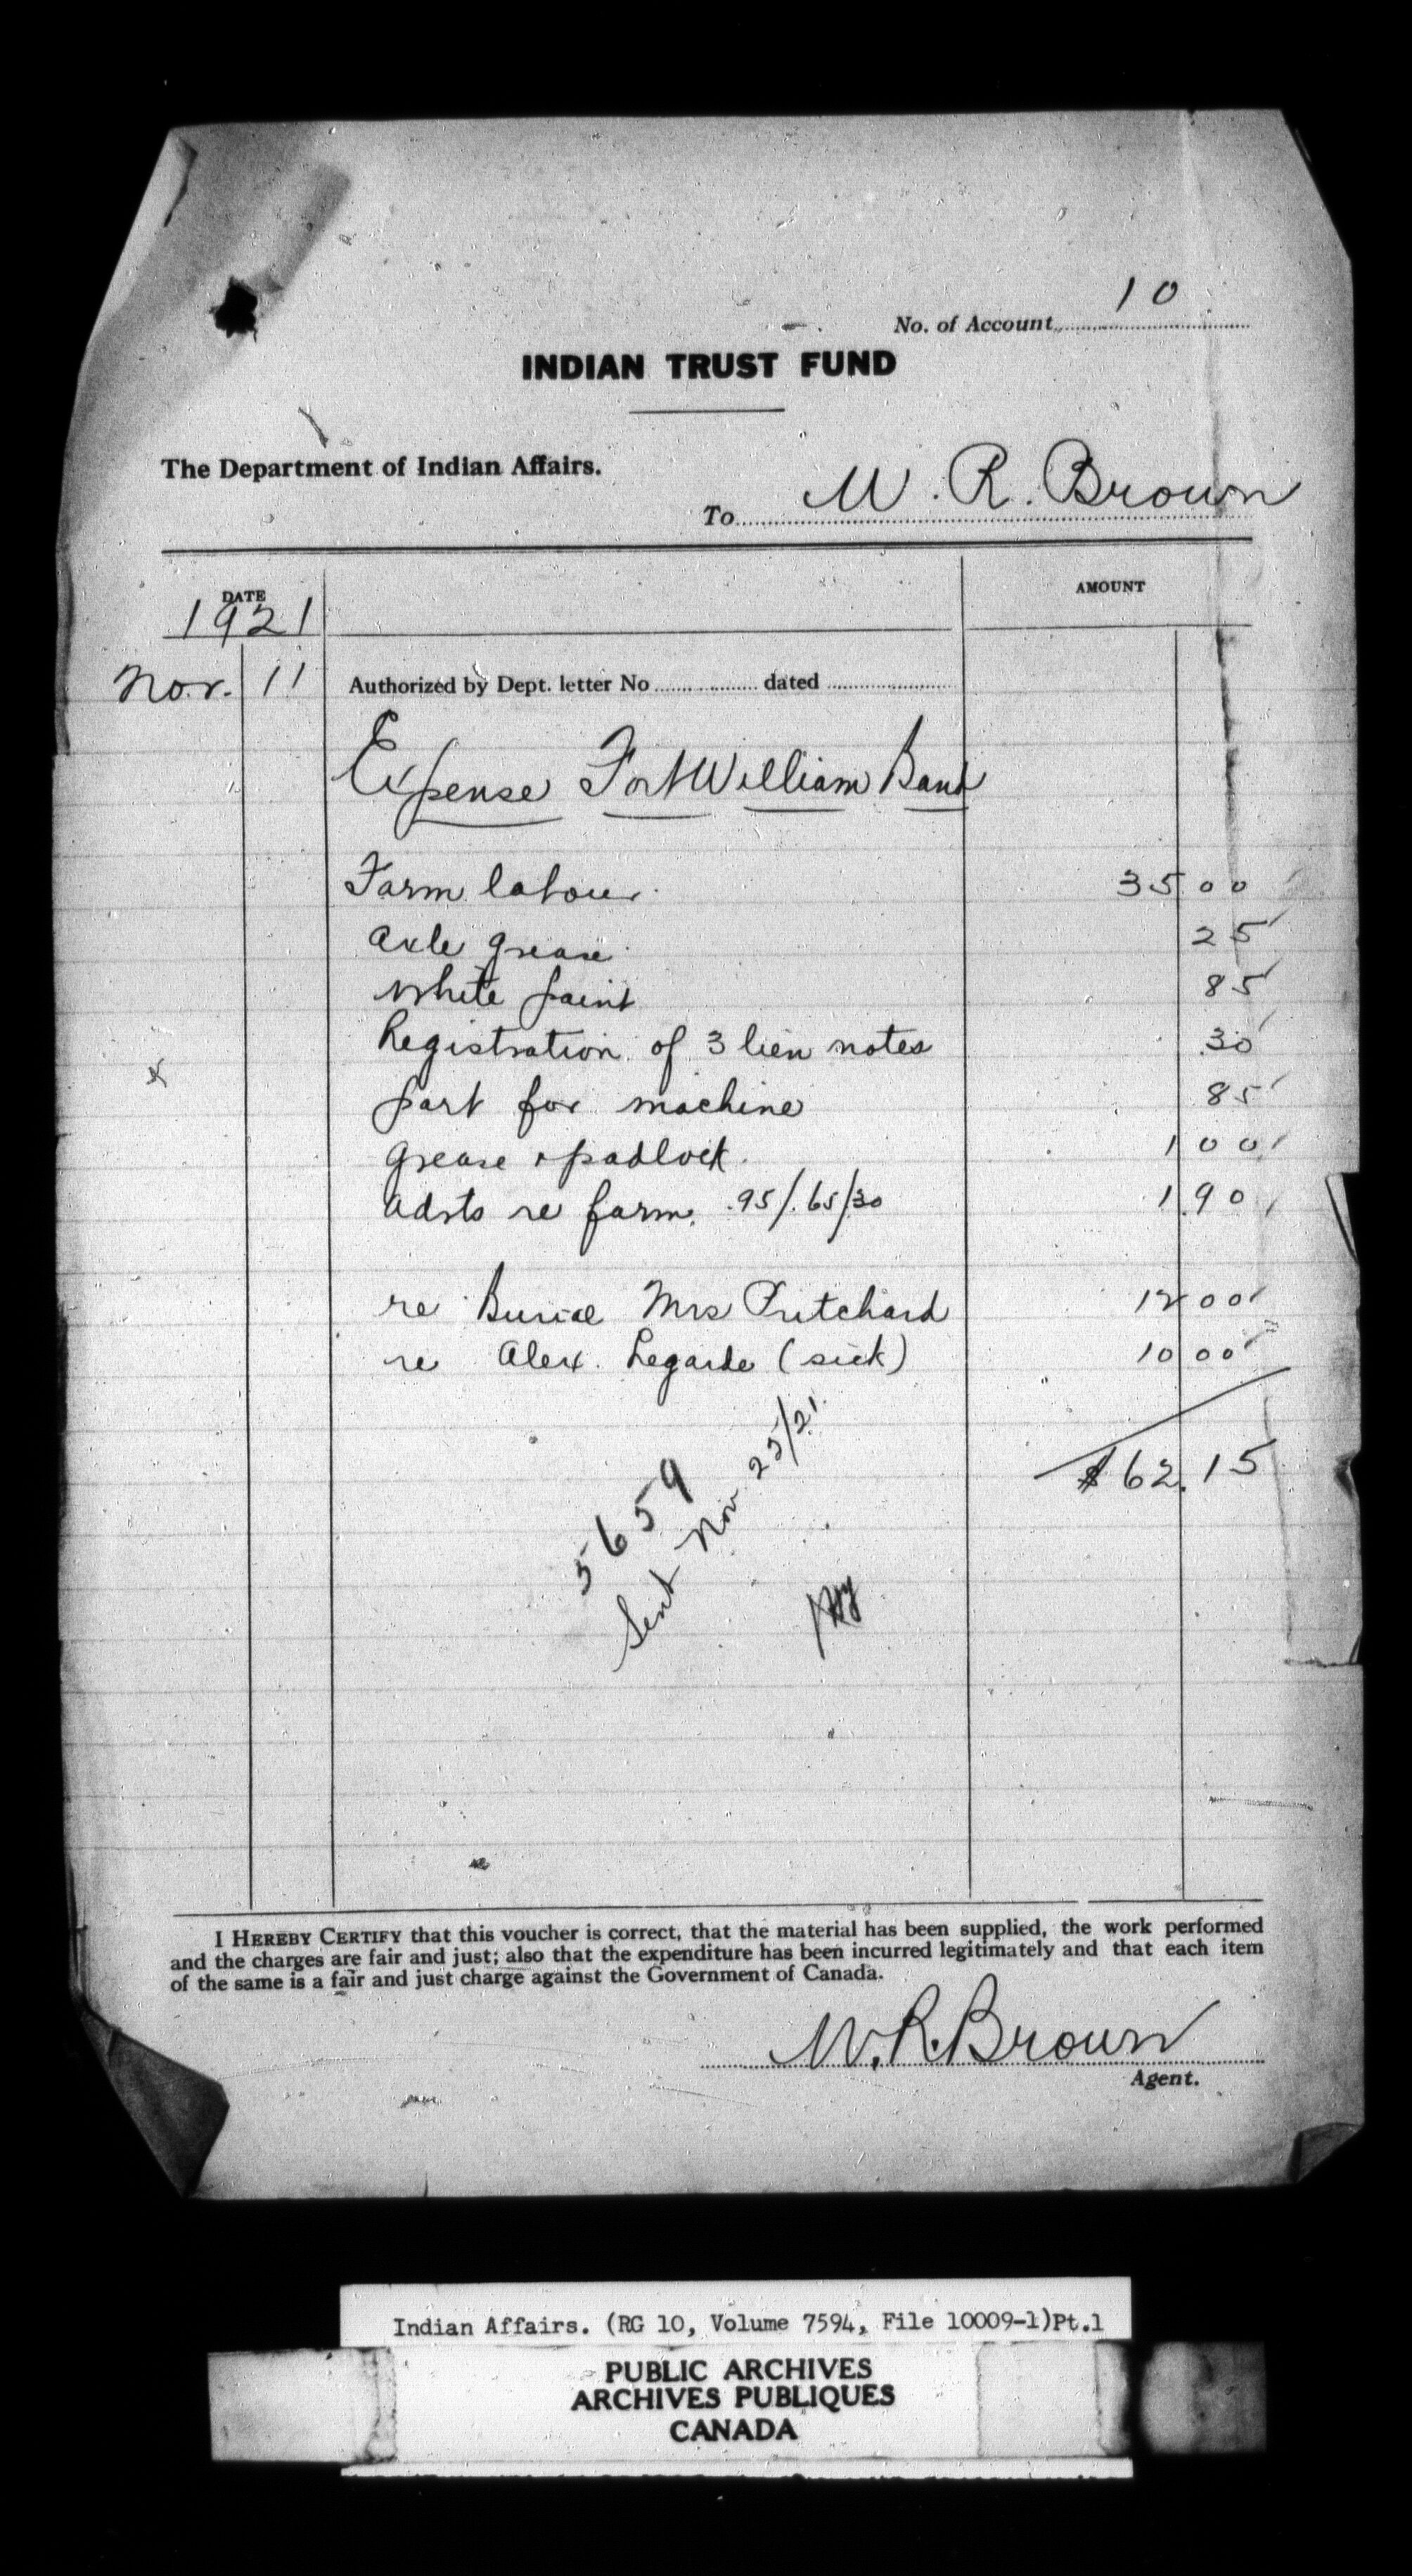 No. of Account 10
INDIAN TRUST FUND
The Department of Indian Affairs.
To W. R. Brown
DATE AMOUNT
1921
Nov. 11 Authorized by Dept. letter No dated
Expense Fort William Band
Farm labour 35 00
Axle grease 25
White paint 85
Registration of 3 lien notes 30
x
part for machine 85
Grease & padlock 1 00
Advts re farm .95/.65/30 1.90
re Burial Mrs Pritchard 12 00
re Alex. Legarde (sick) 10 00
$62.15
5659
Sent Nov 25/21
I HEREBY CERTIFY that this voucher is correct, that the material has been supplied, the work performed
and the charges are fair and just; also that the expenditure has been incurred legitimately and that each item
of the same is a fair and just charge against the Government of Canada.
W. R. Brown
Agent.
Indian Affairs. (RG 10, Volume 7594, File 10009-1)Pt.1
PUBLIC ARCHIVES
ARCHIVES PUBLIQUES
CANADA